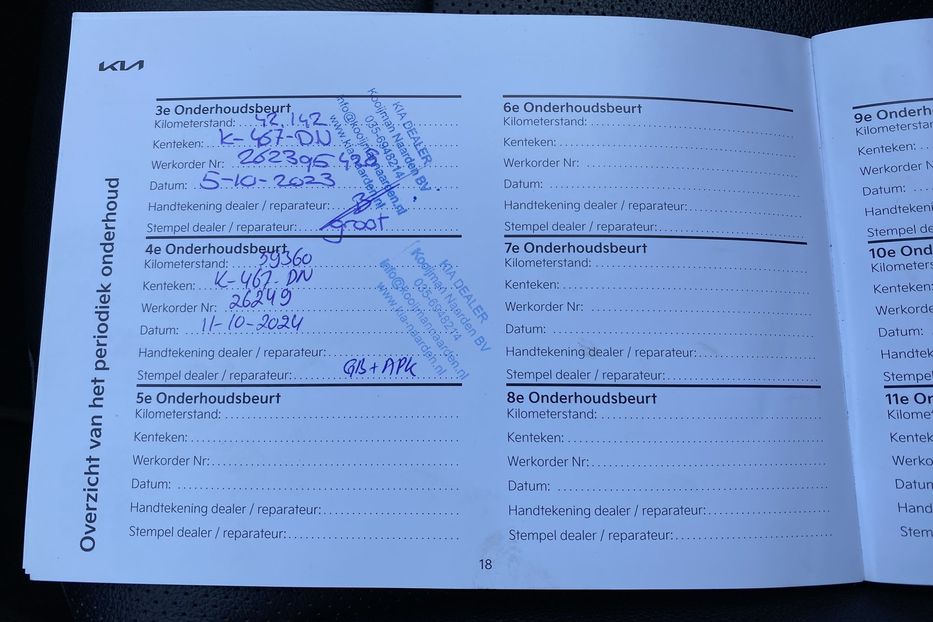 KIA
Overzicht van het periodiek onderhoud
3e Onderhoudsbeurt
Kilometerstand: 42.142
Kenteken: K-467-DN
Werkorder Nr:
Datum: 5-10-2023
Handtekening dealer / reparateur:
Stempel dealer / reparateur: groot
KIA DEALER
Kooijman Naarden BV
035-6948214
info@kooijmannaarden.nl
www.kia-naarden.nl
4e Onderhoudsbeurt
Kilometerstand: 59360
Kenteken: K-467-DN
Werkorder Nr: 26249
Datum: 11-10-2024
Handtekening dealer / reparateur:
Stempel dealer / reparateur: GB + APK
KIA DEALER
Kooijman Naarden BV
035-6948214
info@kooijmannaarden.nl
www.kia-naarden.nl
5e Onderhoudsbeurt
Kilometerstand:
Kenteken:
Werkorder Nr:
Datum:
Handtekening dealer / reparateur:
Stempel dealer / reparateur:
6e Onderhoudsbeurt
Kilometerstand:
Kenteken:
Werkorder Nr:
Datum:
Handtekening dealer / reparateur:
Stempel dealer / reparateur:
7e Onderhoudsbeurt
Kilometerstand:
Kenteken:
Werkorder Nr:
Datum:
Handtekening dealer / reparateur:
Stempel dealer / reparateur:
8e Onderhoudsbeurt
Kilometerstand:
Kenteken:
Werkorder Nr:
Datum:
Handtekening dealer / reparateur:
Stempel dealer / reparateur:
18
9e Onderh
Kilometerstan
Kenteken:
Werkorder Nr:
Datum:
Handtekening
Stempel dea
10e Ond
Kilometers
Kenteken:
Werkorde
Datum:
Handtek
Stempel
11e On
Kilome
Kentek
Werko
Datun
Hand
Stem